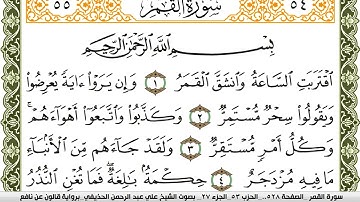 ٥٥ سُورَةُ القَمَرِ ٥٤
بِسْمِ اللَّهِ الرَّحْمَٰنِ الرَّحِيمِ
اقْتَرَبَتِ السَّاعَةُ وَانشَقَّ الْقَمَرُ ١ وَإِن يَرَوْا ءَايَةً يُعْرِضُوا
وَيَقُولُوا سِحْرٌ مُّسْتَمِرٌّ ٢ وَكَذَّبُوا وَاتَّبَعُوا أَهْوَاءَهُمْ
وَكُلُّ أَمْرٍ مُّسْتَقِرٌّ ٣ وَلَقَدْ جَاءَهُم مِّنَ الْأَنبَاءِ
مَا فِيهِ مُزْدَجَرٌ ٤ حِكْمَةٌ بَالِغَةٌ فَمَا تُغْنِ النُّذُرُ
سورة القمر . الصفحة ٥٢٨ . الحزب ٥٣ الجزء ٢٧ . بصوت الشيخ علي عبد الرحمن الحذيفي . برواية قالون عن نافع